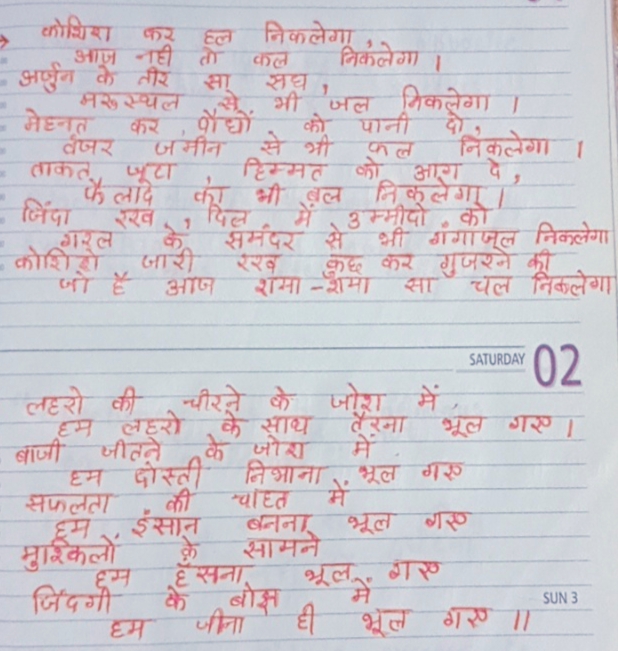 कोशिश कर हल निकलेगा,
आज नही तो कल निकलेगा ।
अर्जुन के तीर सा सध,
मरुस्थल से भी जल निकलेगा ।
मेहनत कर, पौधों को पानी दो,
बंजर जमीन से भी फल निकलेगा ।
ताकत जूटा हिम्मत को आग दे,
फैलादे का भी बल निकलेगा ।
जिंदा रख, दिल में उम्मीदो को
गरल के समंदर से भी गंगाजल निकलेगा
कोशिशे जारी रख कुछ कर गुजरने की
जो है आज शमा-शमा सा चल निकलेगा
SATURDAY 02
लहरो की चीरने के जोश में,
हम लहरो के साथ तैरना भूल गए ।
बाजी जीतने के जोश में
हम दोस्ती निभाना भूल गए
सफलता की चाहत में
हम इंसान बनना भूल गए
मुश्किलों के सामने
हम हँसना भूल गए
जिंदगी के बोझ में
SUN 3
हम जीना ही भूल गए ||